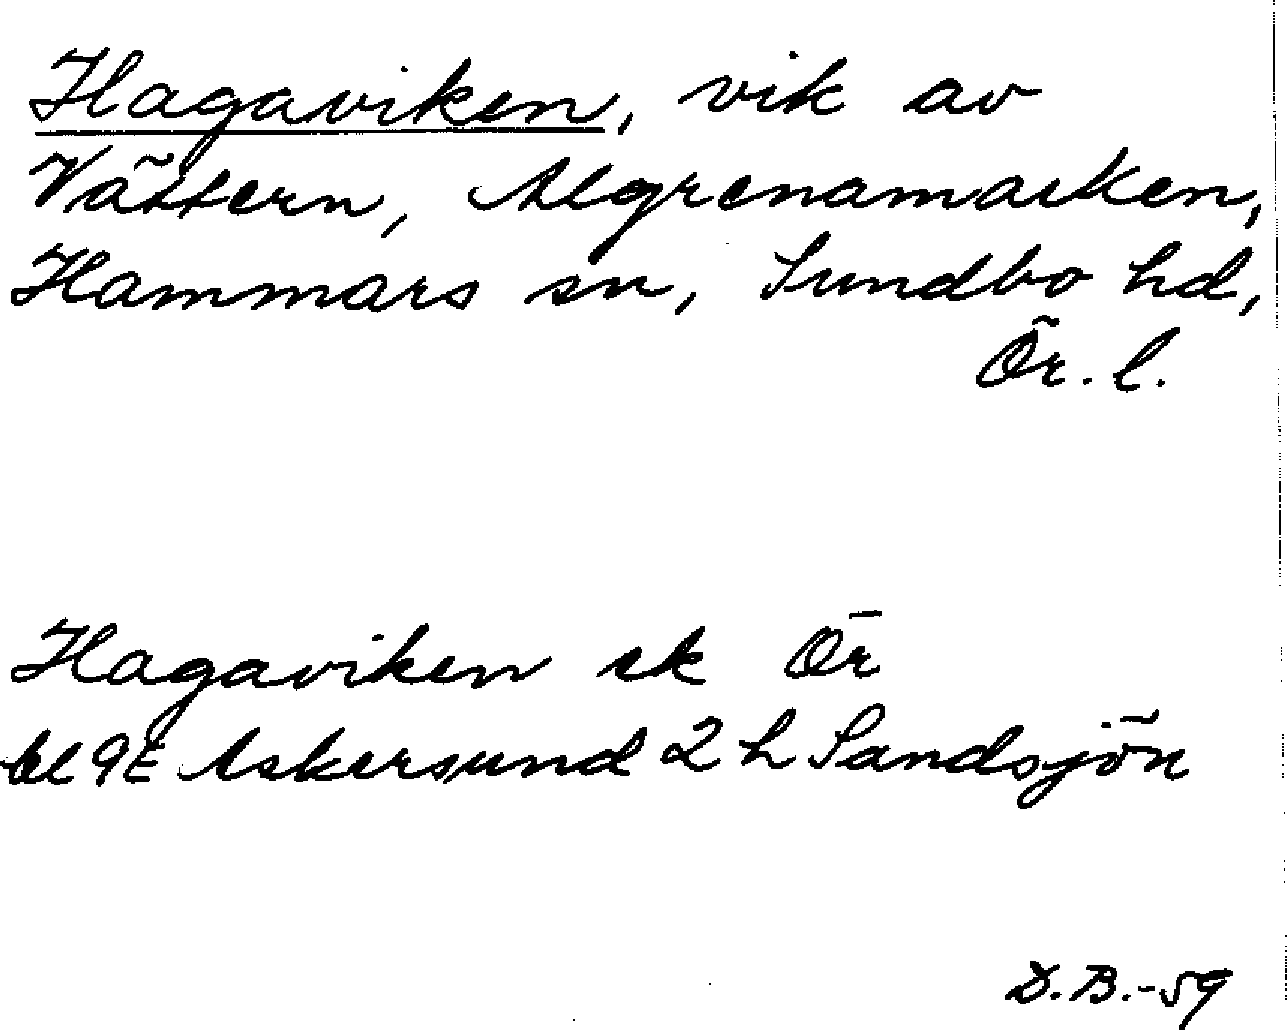 Hagaviken, vik av
Vättern, Algrenamarken,
Hammars sn, Sundbo hd,
Ör. l.
Hagaviken ek Ör
bl 9E Askersund 2 h Sandsjön
D.B.-59